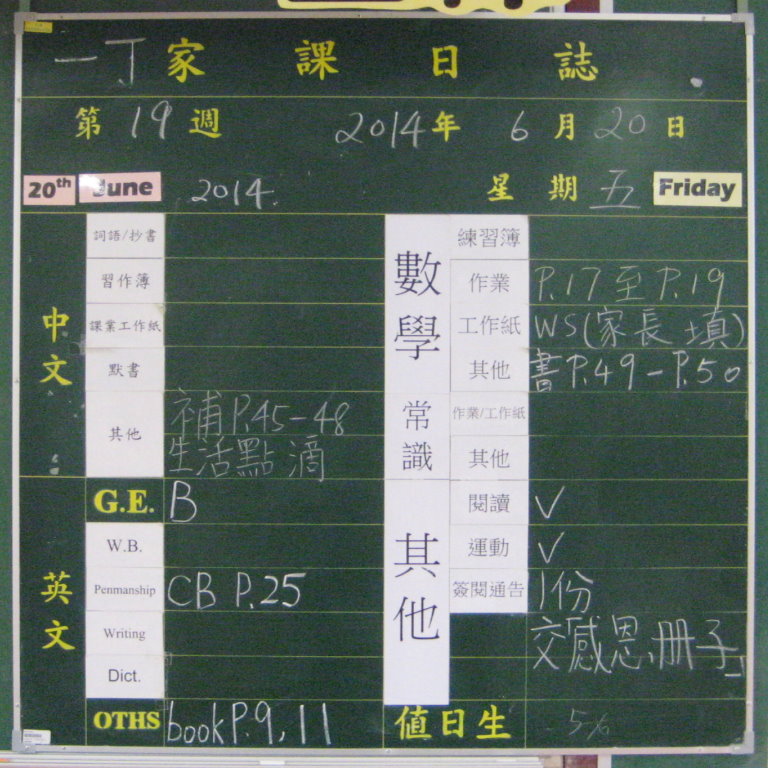 一丁家課日誌
第19週 2014年 6月20日
20th June 2014. 星期五 Friday
中文
詞語/抄書
習作簿
課業工作紙
默書
其他 補P.45-48
生活點滴
英文
G.E. B
W.B.
Penmanship CB P.25
Writing
Dict.
OTHS book P.9, 11
數學
練習簿
作業 P.17至P.19
工作紙 WS(家長填)
其他 書P.49-P.50
常識
作業/工作紙
其他
其他
閱讀 ✓
運動 ✓
簽閱通告 1份
交感恩小冊子
值日生